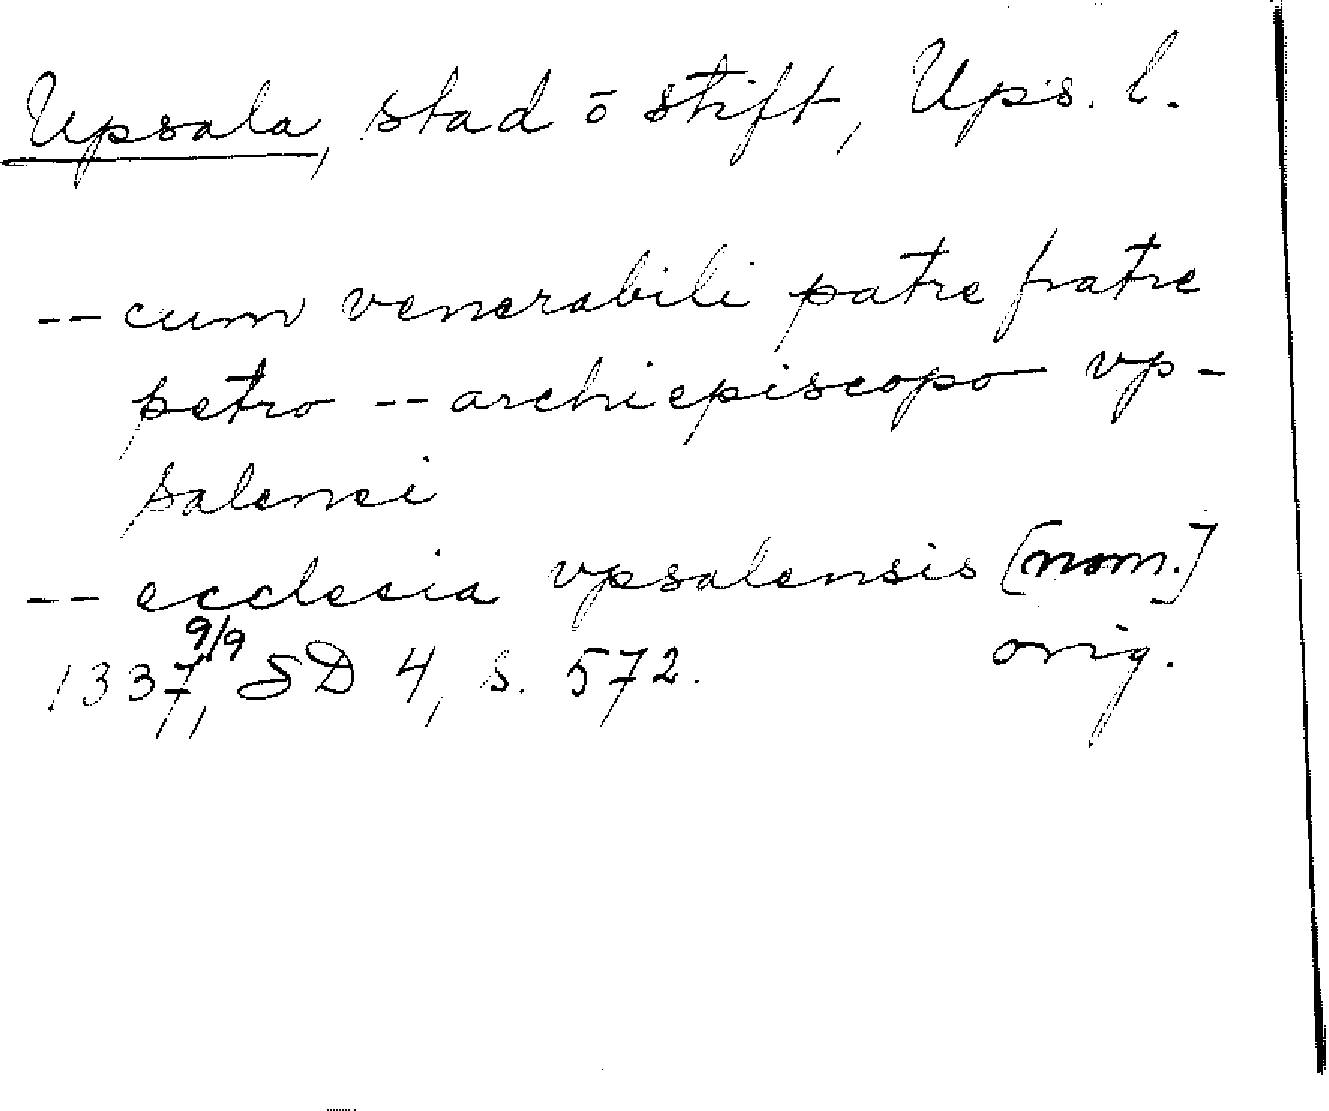 Upsala, stad ō stift, Ups. l.
-- cum venerabili patre fratre
petro -- archiepiscopo vp-
salensi
-- ecclesia vpsalensis [nom.]
1337 9/9, SD 4, s. 572. orig.